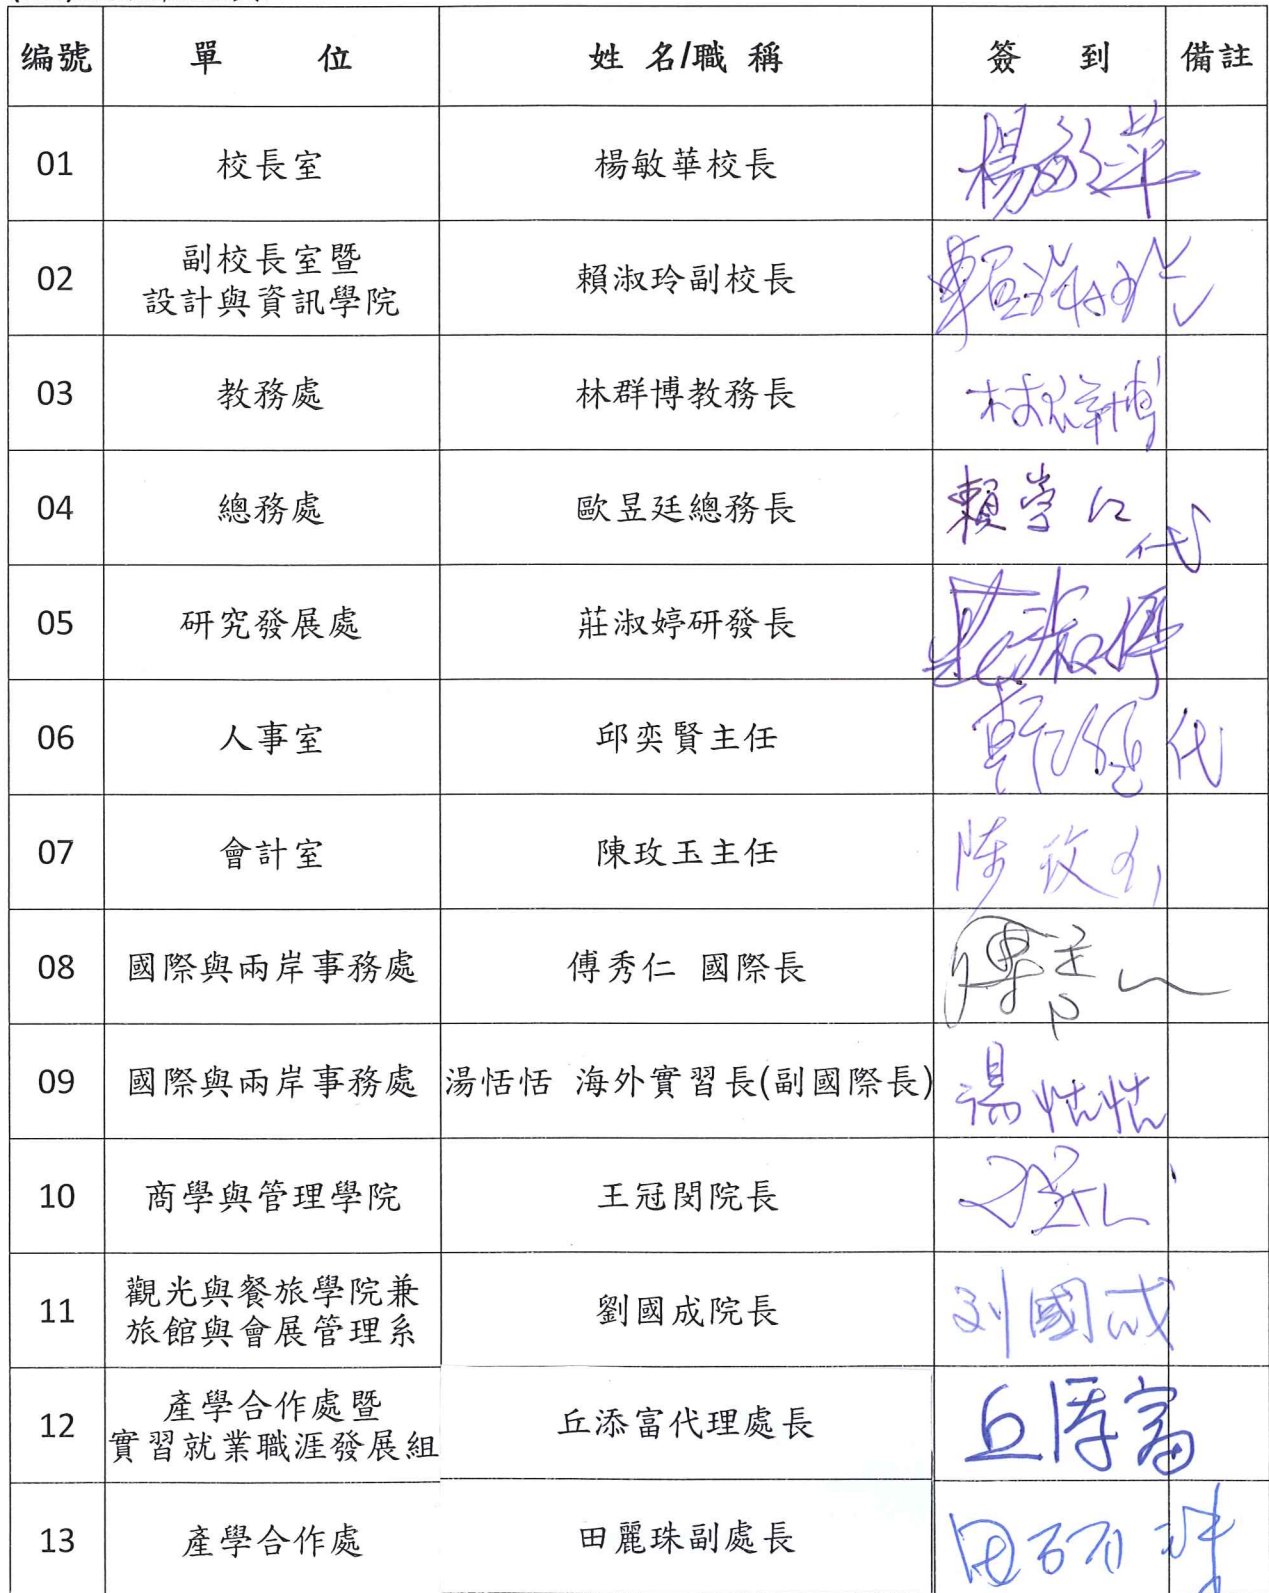 編號 單 位 姓 名/職 稱 簽 到 備註
01 校長室 楊敏華校長 楊敏華
02 副校長室暨 設計與資訊學院 賴淑玲副校長 賴淑玲
03 教務處 林群博教務長 林群博
04 總務處 歐昱廷總務長 代
05 研究發展處 莊淑婷研發長 莊淑婷
06 人事室 邱奕賢主任 代
07 會計室 陳玫玉主任 陳玫玉
08 國際與兩岸事務處 傅秀仁 國際長 傅秀仁
09 國際與兩岸事務處 湯恬恬 海外實習長(副國際長) 湯恬恬
10 商學與管理學院 王冠閔院長
11 觀光與餐旅學院兼 旅館與會展管理系 劉國成院長 刘國成
12 產學合作處暨 實習就業職涯發展組 丘添富代理處長 丘添富
13 產學合作處 田麗珠副處長 田丽珠